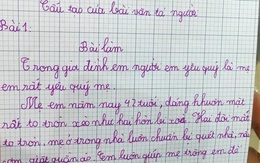 Cấu tạo của bài văn tả người
Bài 1.
Bài làm
Trong gia đình em người em yêu quý là mẹ
em rất yêu quý mẹ.
Mẹ em năm nay 42 tuổi, dáng khuôn mặt
rất to tròn xoe như hai hòn bi xoa. Hai đôi mắt
to tròn, mẹ ở trong nhà luôn chuẩn bị quét nhà, nấu
cơm giặt quần áo. Em luôn giúp mẹ trông em để